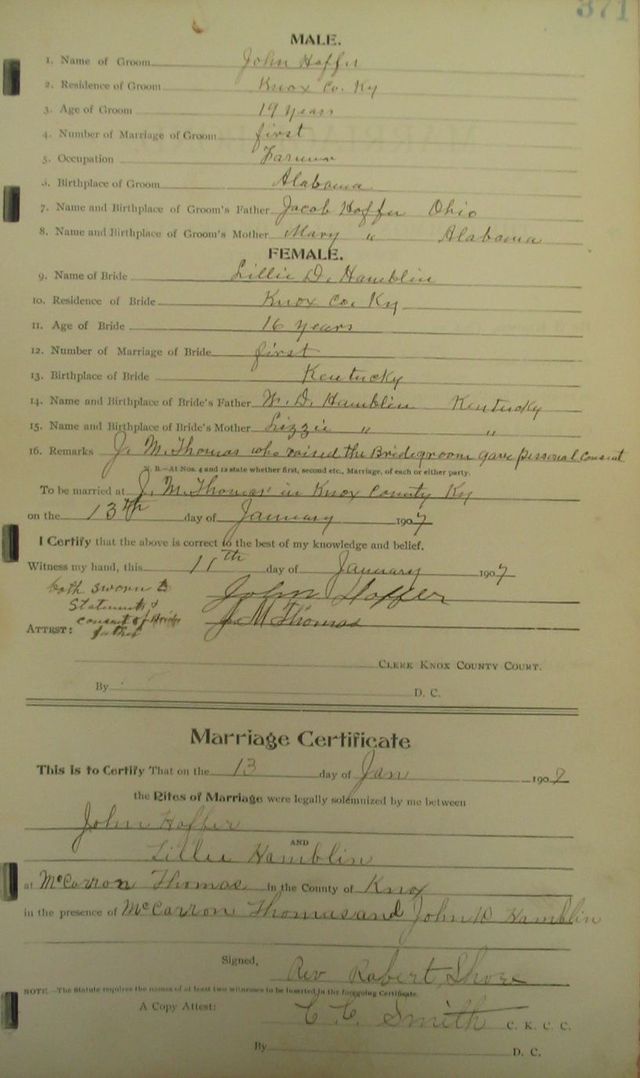 371
MALE.
1. Name of Groom John Hoffer
2. Residence of Groom Knox Co. Ky
3. Age of Groom 19 years
4. Number of Marriage of Groom first
5. Occupation Farmer
6. Birthplace of Groom Alabama
7. Name and Birthplace of Groom's Father Jacob Hoffer Ohio
8. Name and Birthplace of Groom's Mother Mary " Alabama
FEMALE.
9. Name of Bride Lillie D. Hamblin
10. Residence of Bride Knox Co. Ky
11. Age of Bride 16 years
12. Number of Marriage of Bride first
13. Birthplace of Bride Kentucky
14. Name and Birthplace of Bride's Father W. D. Hamblin Kentucky
15. Name and Birthplace of Bride's Mother Lizzie " "
16. Remarks J. M. Thomas who raised the Bridegroom gave personal consent
N. B.—At Nos. 4 and 12 state whether first, second etc., Marriage, of each or either party.
To be married at J. M. Thomas' in Knox County Ky
on the 13th day of January 1907
I Certify that the above is correct to the best of my knowledge and belief.
Witness my hand, this 11th day of January 1907
both sworn to
Statements &
consent of Brides
father
John Hoffer
J. M Thomas
ATTEST:
CLERK KNOX COUNTY COURT.
By D. C.
Marriage Certificate
This is to Certify That on the 13 day of Jan 1907
the Rites of Marriage were legally solemnized by me between
John Hoffer
AND
Lillie Hamblin
at McCarron Thomas In the County of Knox
in the presence of McCarrone Thomas and John D Hamblin
Signed, Rev Robert
NOTE.—The Statute requires the names of at least two witnesses to be inserted in the foregoing Certificate.
A Copy Attest: C. C. Smith C. K. C. C.
By D. C.